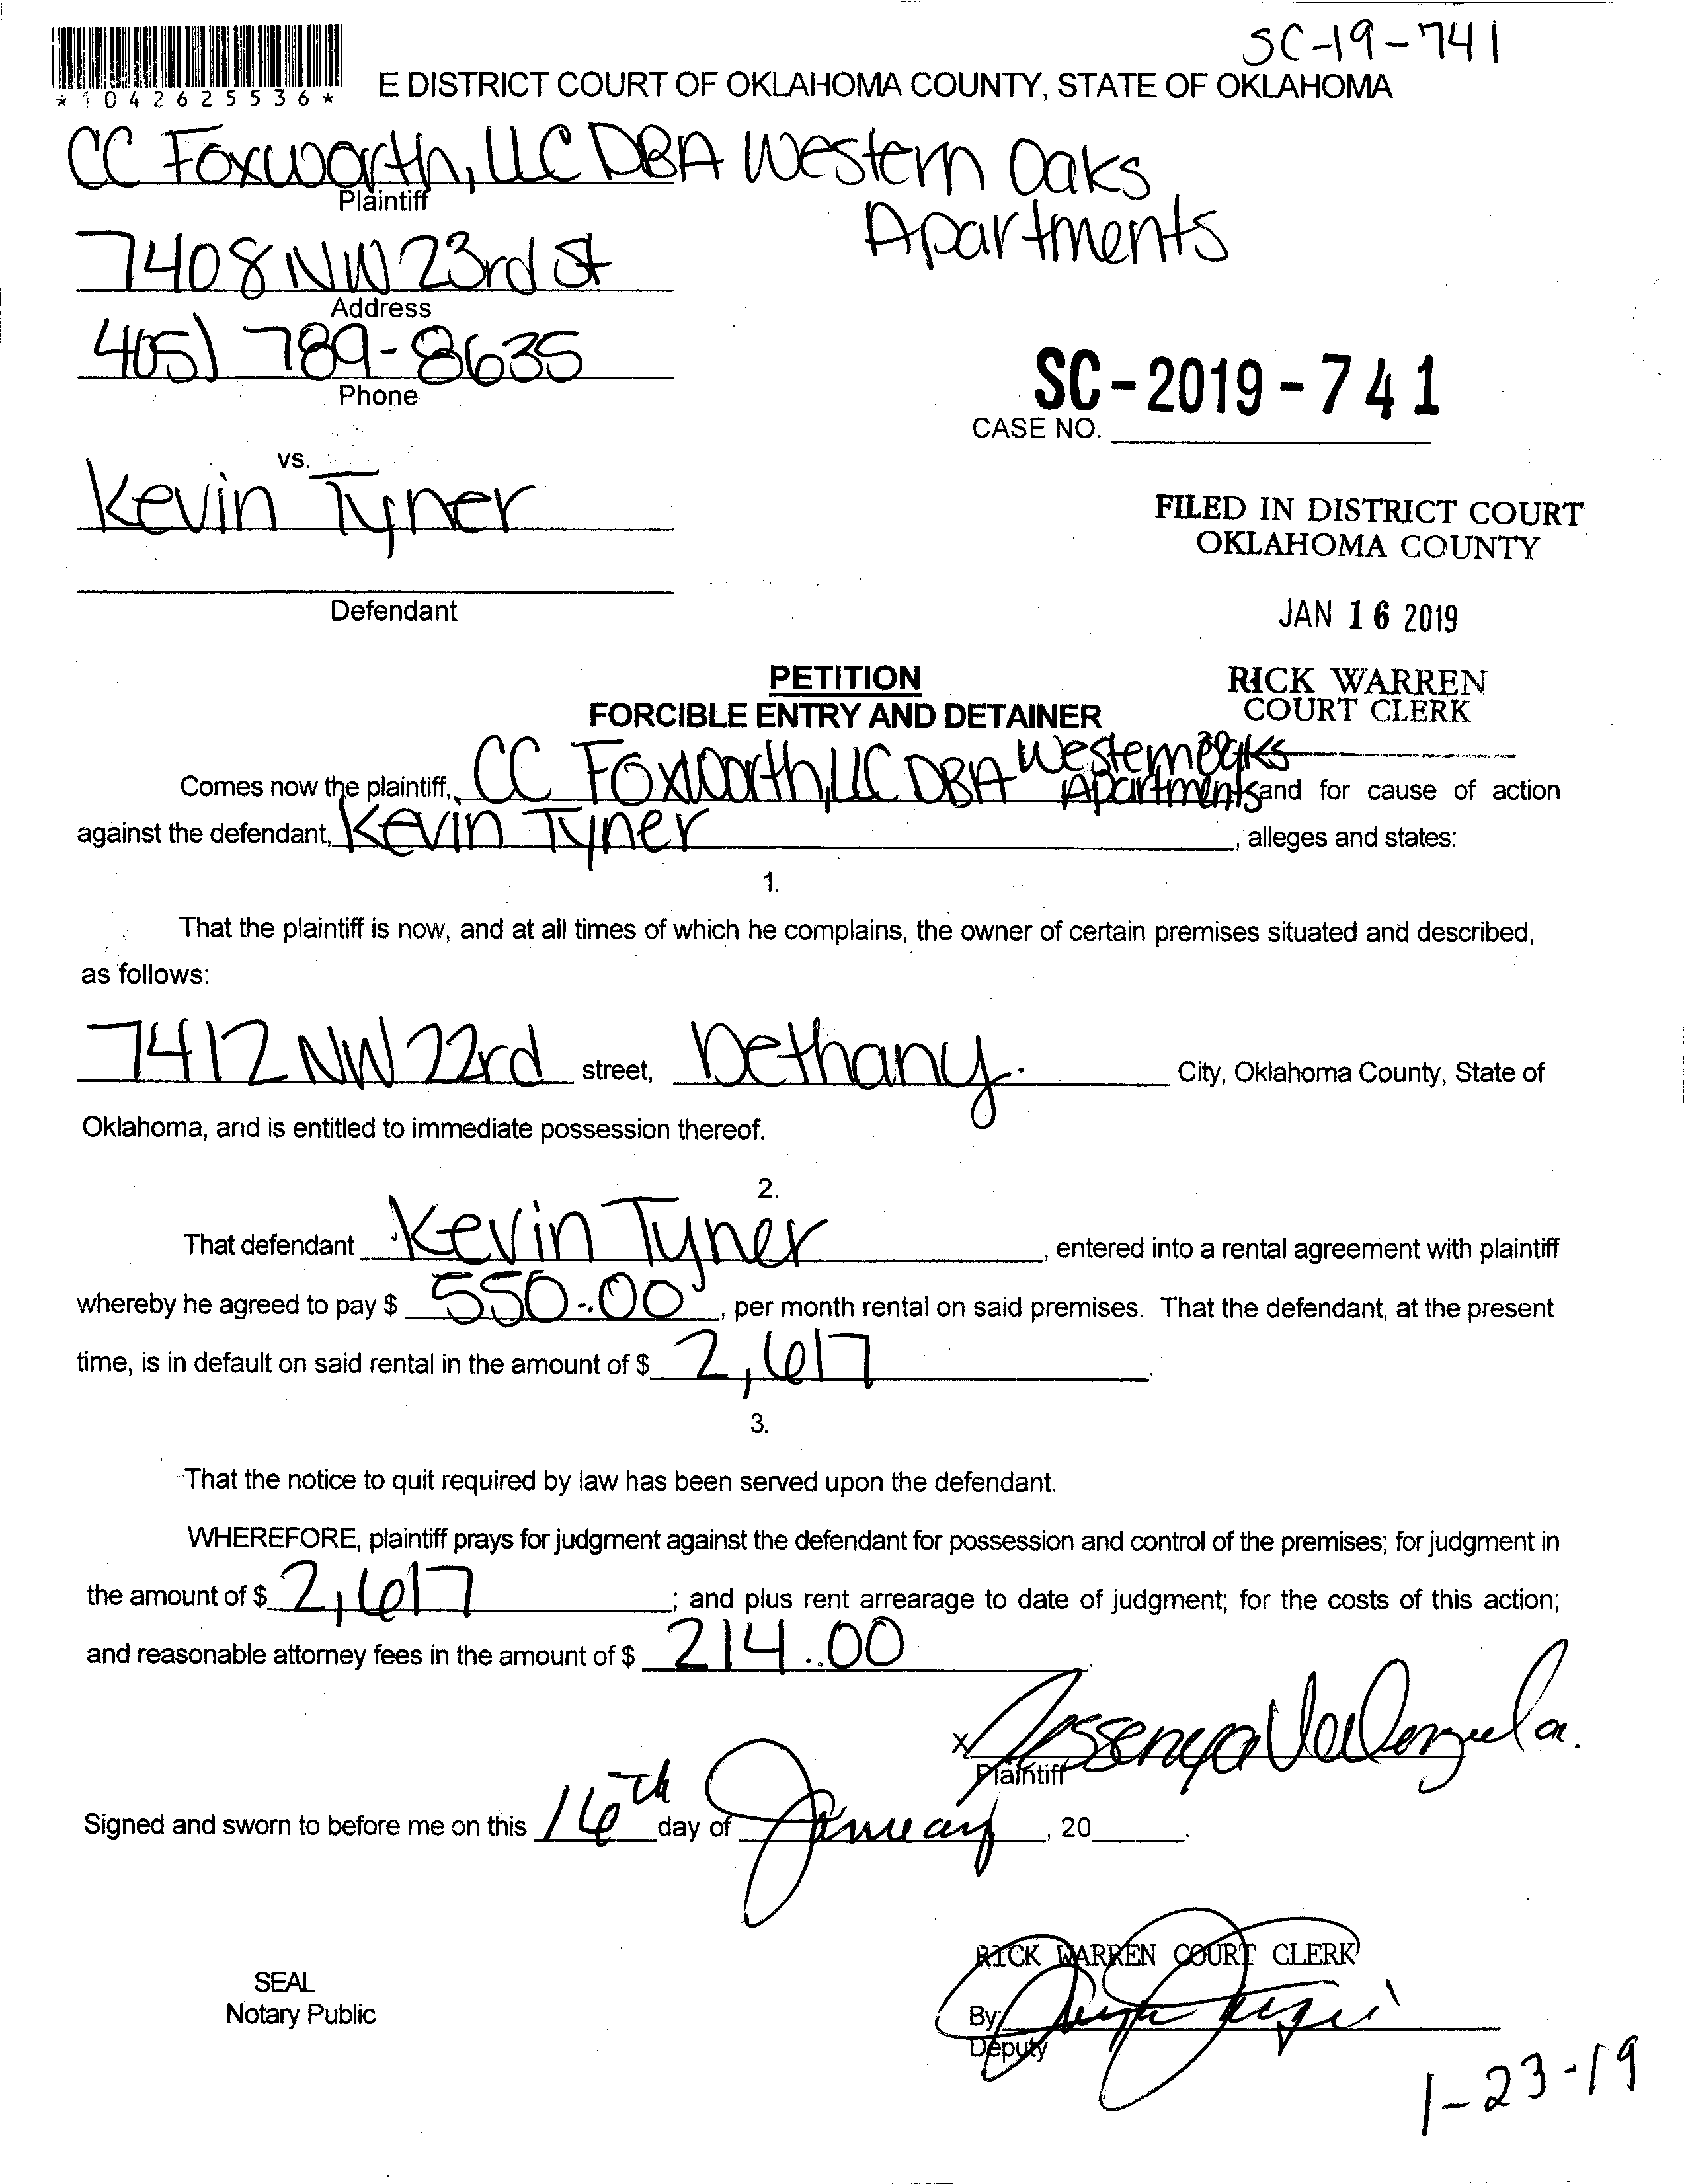 SC-19-741
*1042625536*
E DISTRICT COURT OF OKLAHOMA COUNTY, STATE OF OKLAHOMA
CC Foxworth, LLC DBA Western Oaks
Apartments
Plaintiff
7408 NW 23rd St
Address
405) 789-8635
Phone
SC-2019-741
CASE NO.
vs.
Kevin Tyner
FILED IN DISTRICT COURT
OKLAHOMA COUNTY
Defendant
JAN 16 2019
RICK WARREN
COURT CLERK
PETITION
FORCIBLE ENTRY AND DETAINER
Comes now the plaintiff, CC Foxworth, LLC DBA Western Oaks Apartments and for cause of action
against the defendant, Kevin Tyner, alleges and states:
1.
That the plaintiff is now, and at all times of which he complains, the owner of certain premises situated and described,
as follows:
7412 NW 22rd street, Bethany City, Oklahoma County, State of
Oklahoma, and is entitled to immediate possession thereof.
2.
That defendant Kevin Tyner, entered into a rental agreement with plaintiff
whereby he agreed to pay $ 550.00, per month rental on said premises. That the defendant, at the present
time, is in default on said rental in the amount of $ 2,617.
3.
That the notice to quit required by law has been served upon the defendant.
WHEREFORE, plaintiff prays for judgment against the defendant for possession and control of the premises; for judgment in
the amount of $ 2,617; and plus rent arrearage to date of judgment; for the costs of this action;
and reasonable attorney fees in the amount of $ 214.00.
x Yessenya Valenzuela.
Plaintiff
Signed and sworn to before me on this 16th day of January, 20
SEAL
Notary Public
RICK WARREN COURT CLERK
By
Deputy
1-23-19